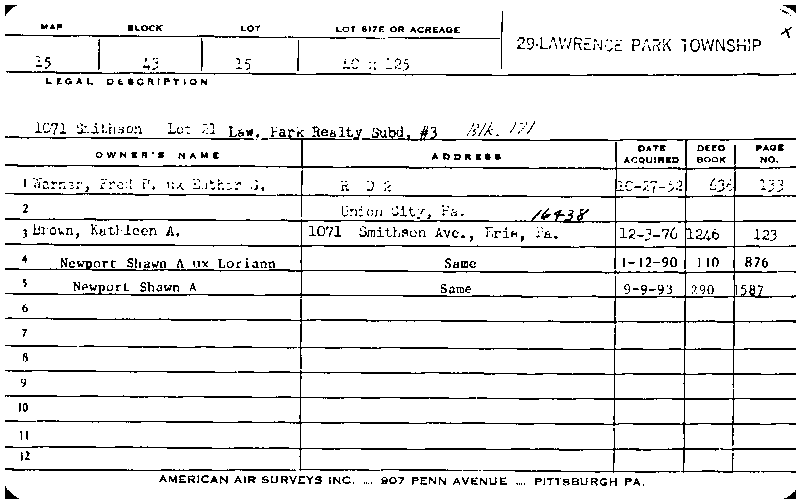 MAP BLOCK LOT LOT SIZE OR ACREAGE
29-LAWRENCE PARK TOWNSHIP
15 43 15 40 x 125
LEGAL DESCRIPTION
1071 Smithson Lot 21 Law. Park Realty Subd. #3 Blk. 171
OWNER'S NAME ADDRESS DATE ACQUIRED DEED BOOK PAGE NO.
1 Warner, Fred ux Esther G. R D 2 10-27-52 636 133
2 Union City, Pa. 16438
3 Brown, Kathleen A. 1071 Smithson Ave., Erie, Pa. 12-3-76 1246 123
4 Newport Shawn A ux Loriann Same 1-12-90 110 876
5 Newport Shawn A Same 9-9-93 290 1587
6
7
8
9
10
11
12
AMERICAN AIR SURVEYS INC. .... 907 PENN AVENUE .... PITTSBURGH PA.